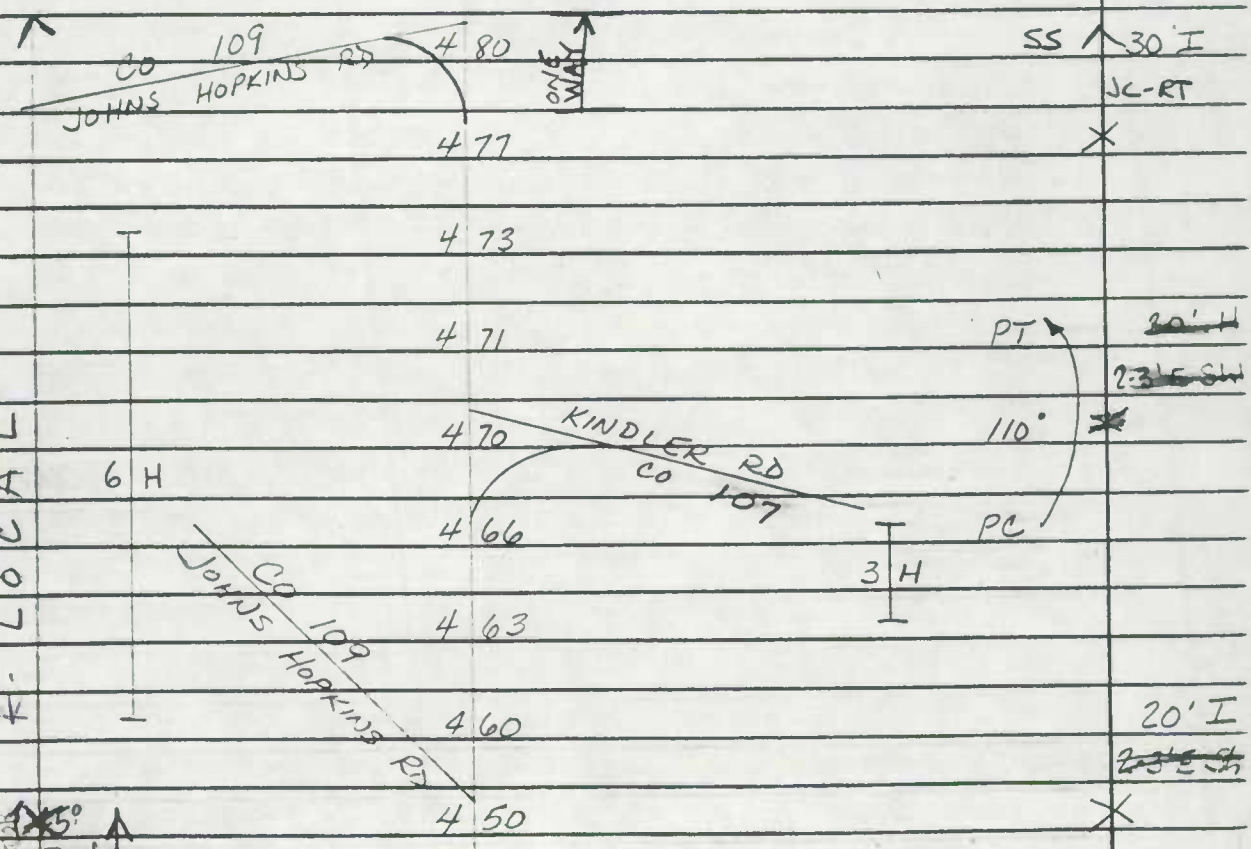 CO 109
JOHNS HOPKINS RD
4 80
ONE WAY
SS 30 I
JC-RT
4 77
4 73
4 71
PT
20' H
4 70
KINDLER RD
CO 107
110°
6 H
4 66
PC
3 H
CO 109
JOHNS HOPKINS RD
4 63
LOCAL
4 60
20' I
4 50
5°